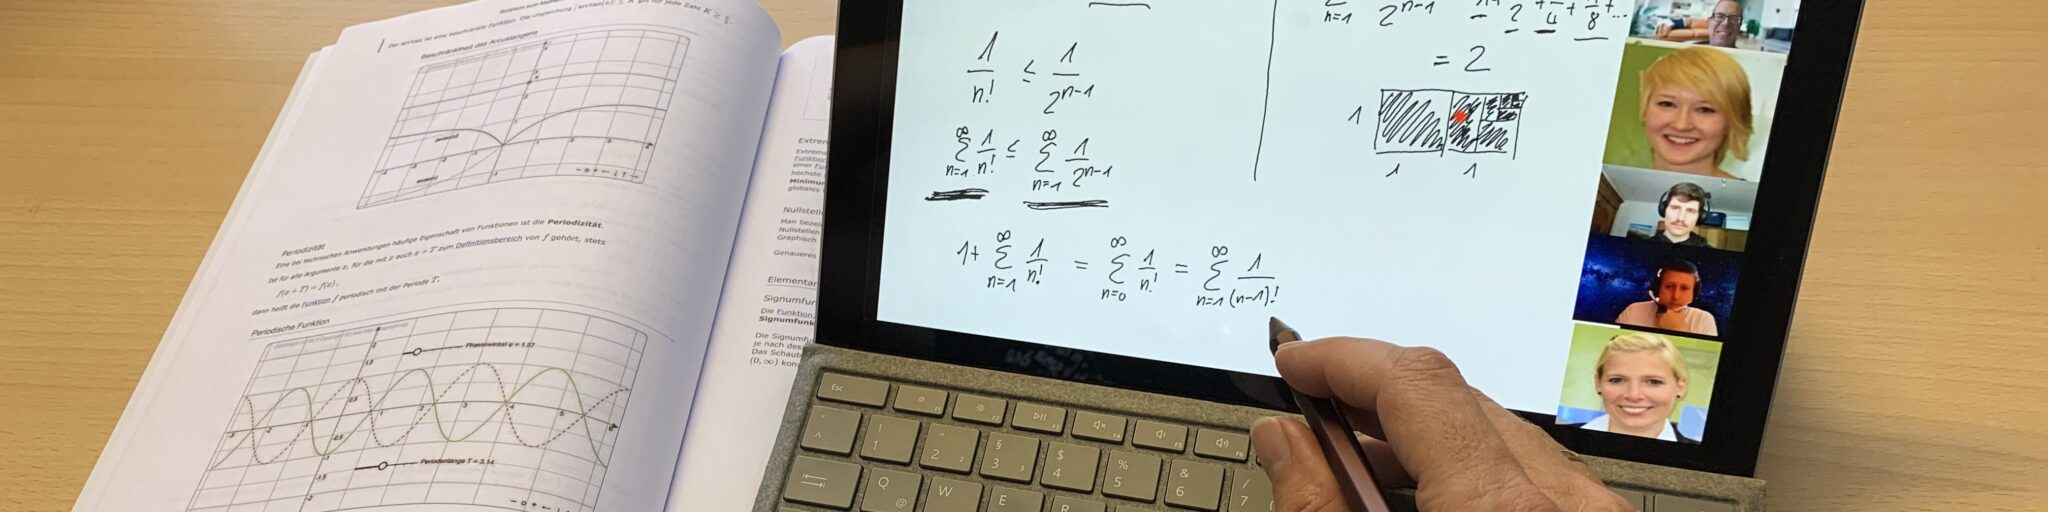 Der arctan ist eine beschränkte Funktion. Die Ungleichung |arctan(x)| ≤ K gilt für jede Zahl K ≥
Beschränktheit des Arcustangens
Periodizität
Eine bei technischen Anwendungen häufige Eigenschaft von Funktionen ist die Periodizität.
Ist für alle Argumente x, für die mit x auch x + T zum Definitionsbereich von f gehört, stets
f(x + T) = f(x),
dann heißt die Funktion f periodisch mit der Periode T.
Periodische Funktion
Phasenwinkel φ = 1.57
Periodenlänge T = 3.14
Extrem
Nullstell
Man bezei
Nullstellen
Graphisch
Genaueres
Elementar
Signumfur
Die Funktion,
Signumfunk
Die Signumfu
je nach dess
Das Schaub
(0, ∞) kons
1/n! ≤ 1/2^(n-1)
∞ ∑ n=1 1/n! ≤ ∞ ∑ n=1 1/2^(n-1)
1+ ∞ ∑ n=1 1/n! = ∞ ∑ n=0 1/n! = ∞ ∑ n=1 1/(n-1)!
= 2
1
1 1
Esc F1 F2 F3 F4 F5 F6
^ ! 1 " 2 § 3 $ 4 % 5 & 6 / 7
Q @ W E R